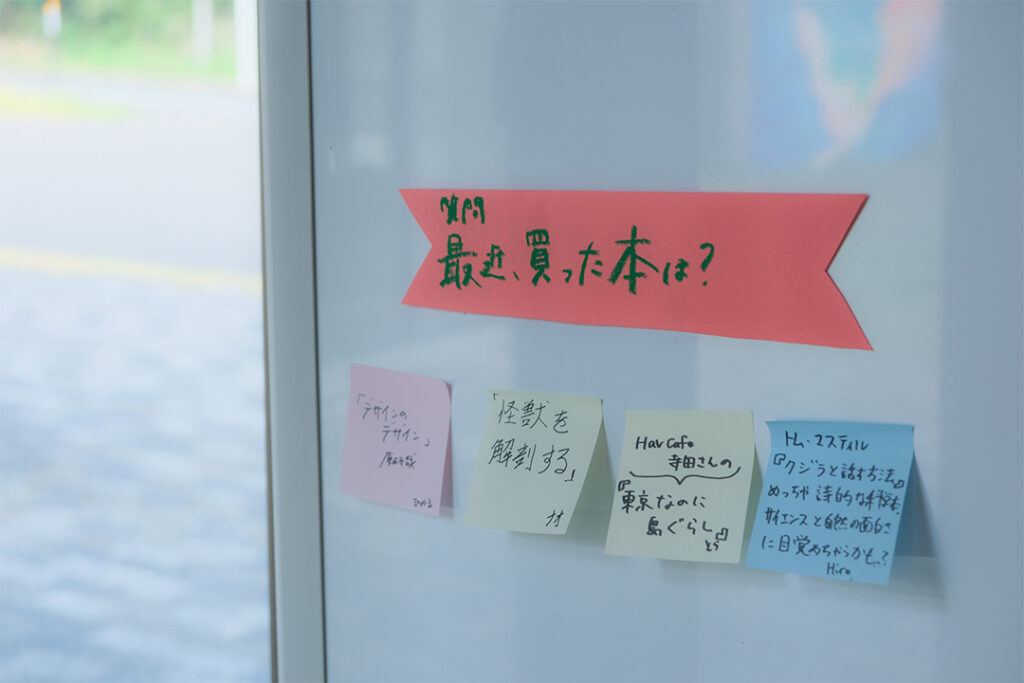 質問
最近、買った本は?
「デザインの
デザイン」
原研哉
ひかる
「怪獣を
解剖する」
ナオ
Hav Cafe
寺田さんの
『東京なのに
島ぐらし』
とら
トム・マスティル
『クジラと話す方法』
めっちゃ詩的な科学本。
サイエンスと自然の面白さ
に目覚めちゃうかもって
Hiro